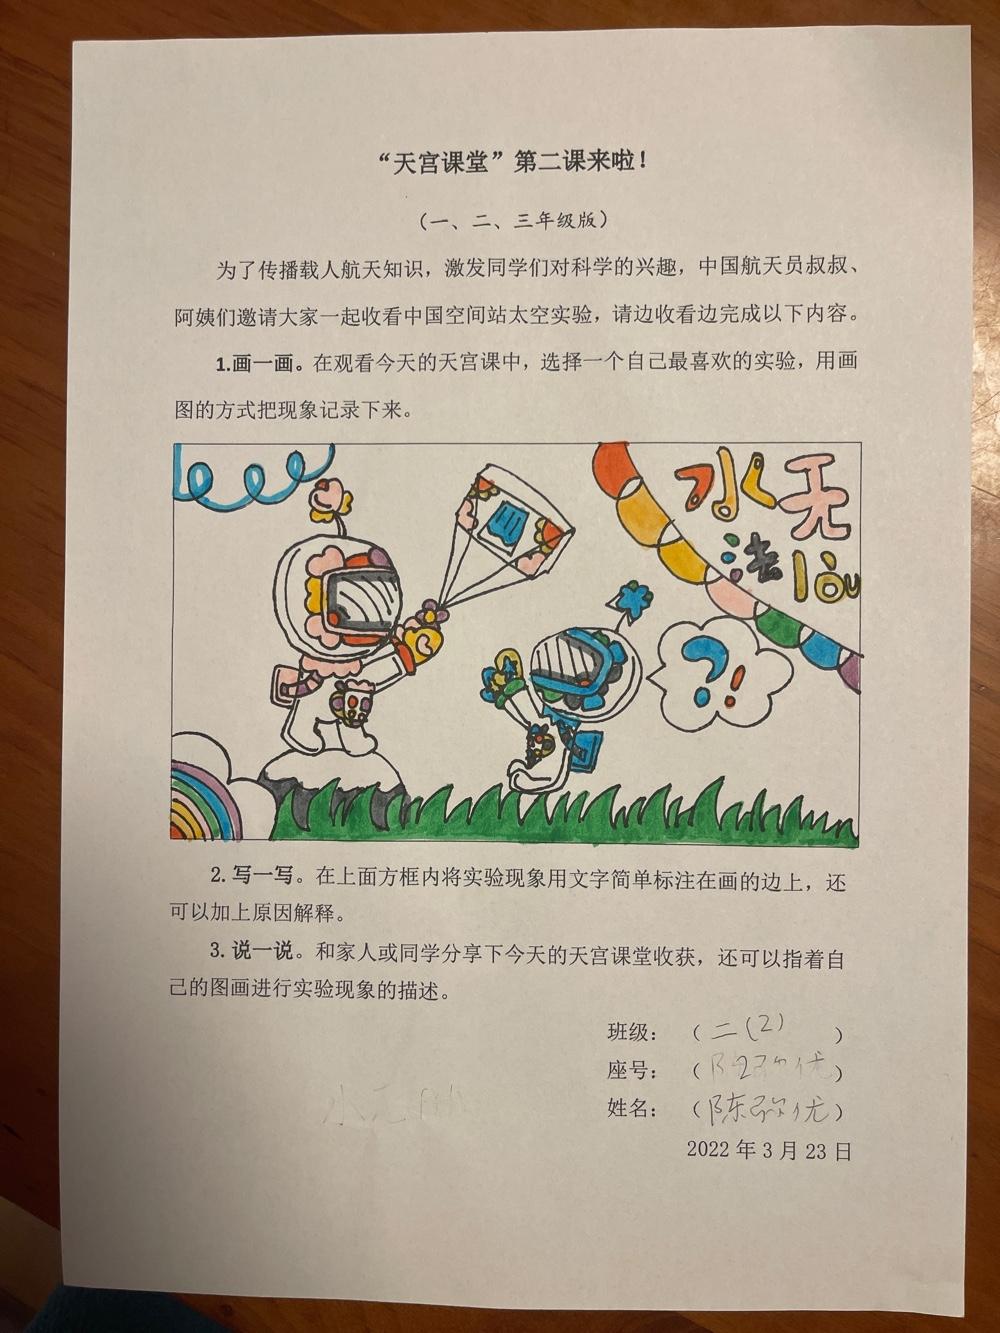 “天宫课堂”第二课来啦！
（一、二、三年级版）
为了传播载人航天知识，激发同学们对科学的兴趣，中国航天员叔叔、
阿姨们邀请大家一起收看中国空间站太空实验，请边收看边完成以下内容。
1.画一画。在观看今天的天宫课中，选择一个自己最喜欢的实验，用画
图的方式把现象记录下来。
水无
法lòu
?!
2. 写一写。在上面方框内将实验现象用文字简单标注在画的边上，还
可以加上原因解释。
3. 说一说。和家人或同学分享下今天的天宫课堂收获，还可以指着自
己的图画进行实验现象的描述。
班级：（二(2)）
座号：（2）
姓名：（陈弥优）
2022 年 3 月 23 日